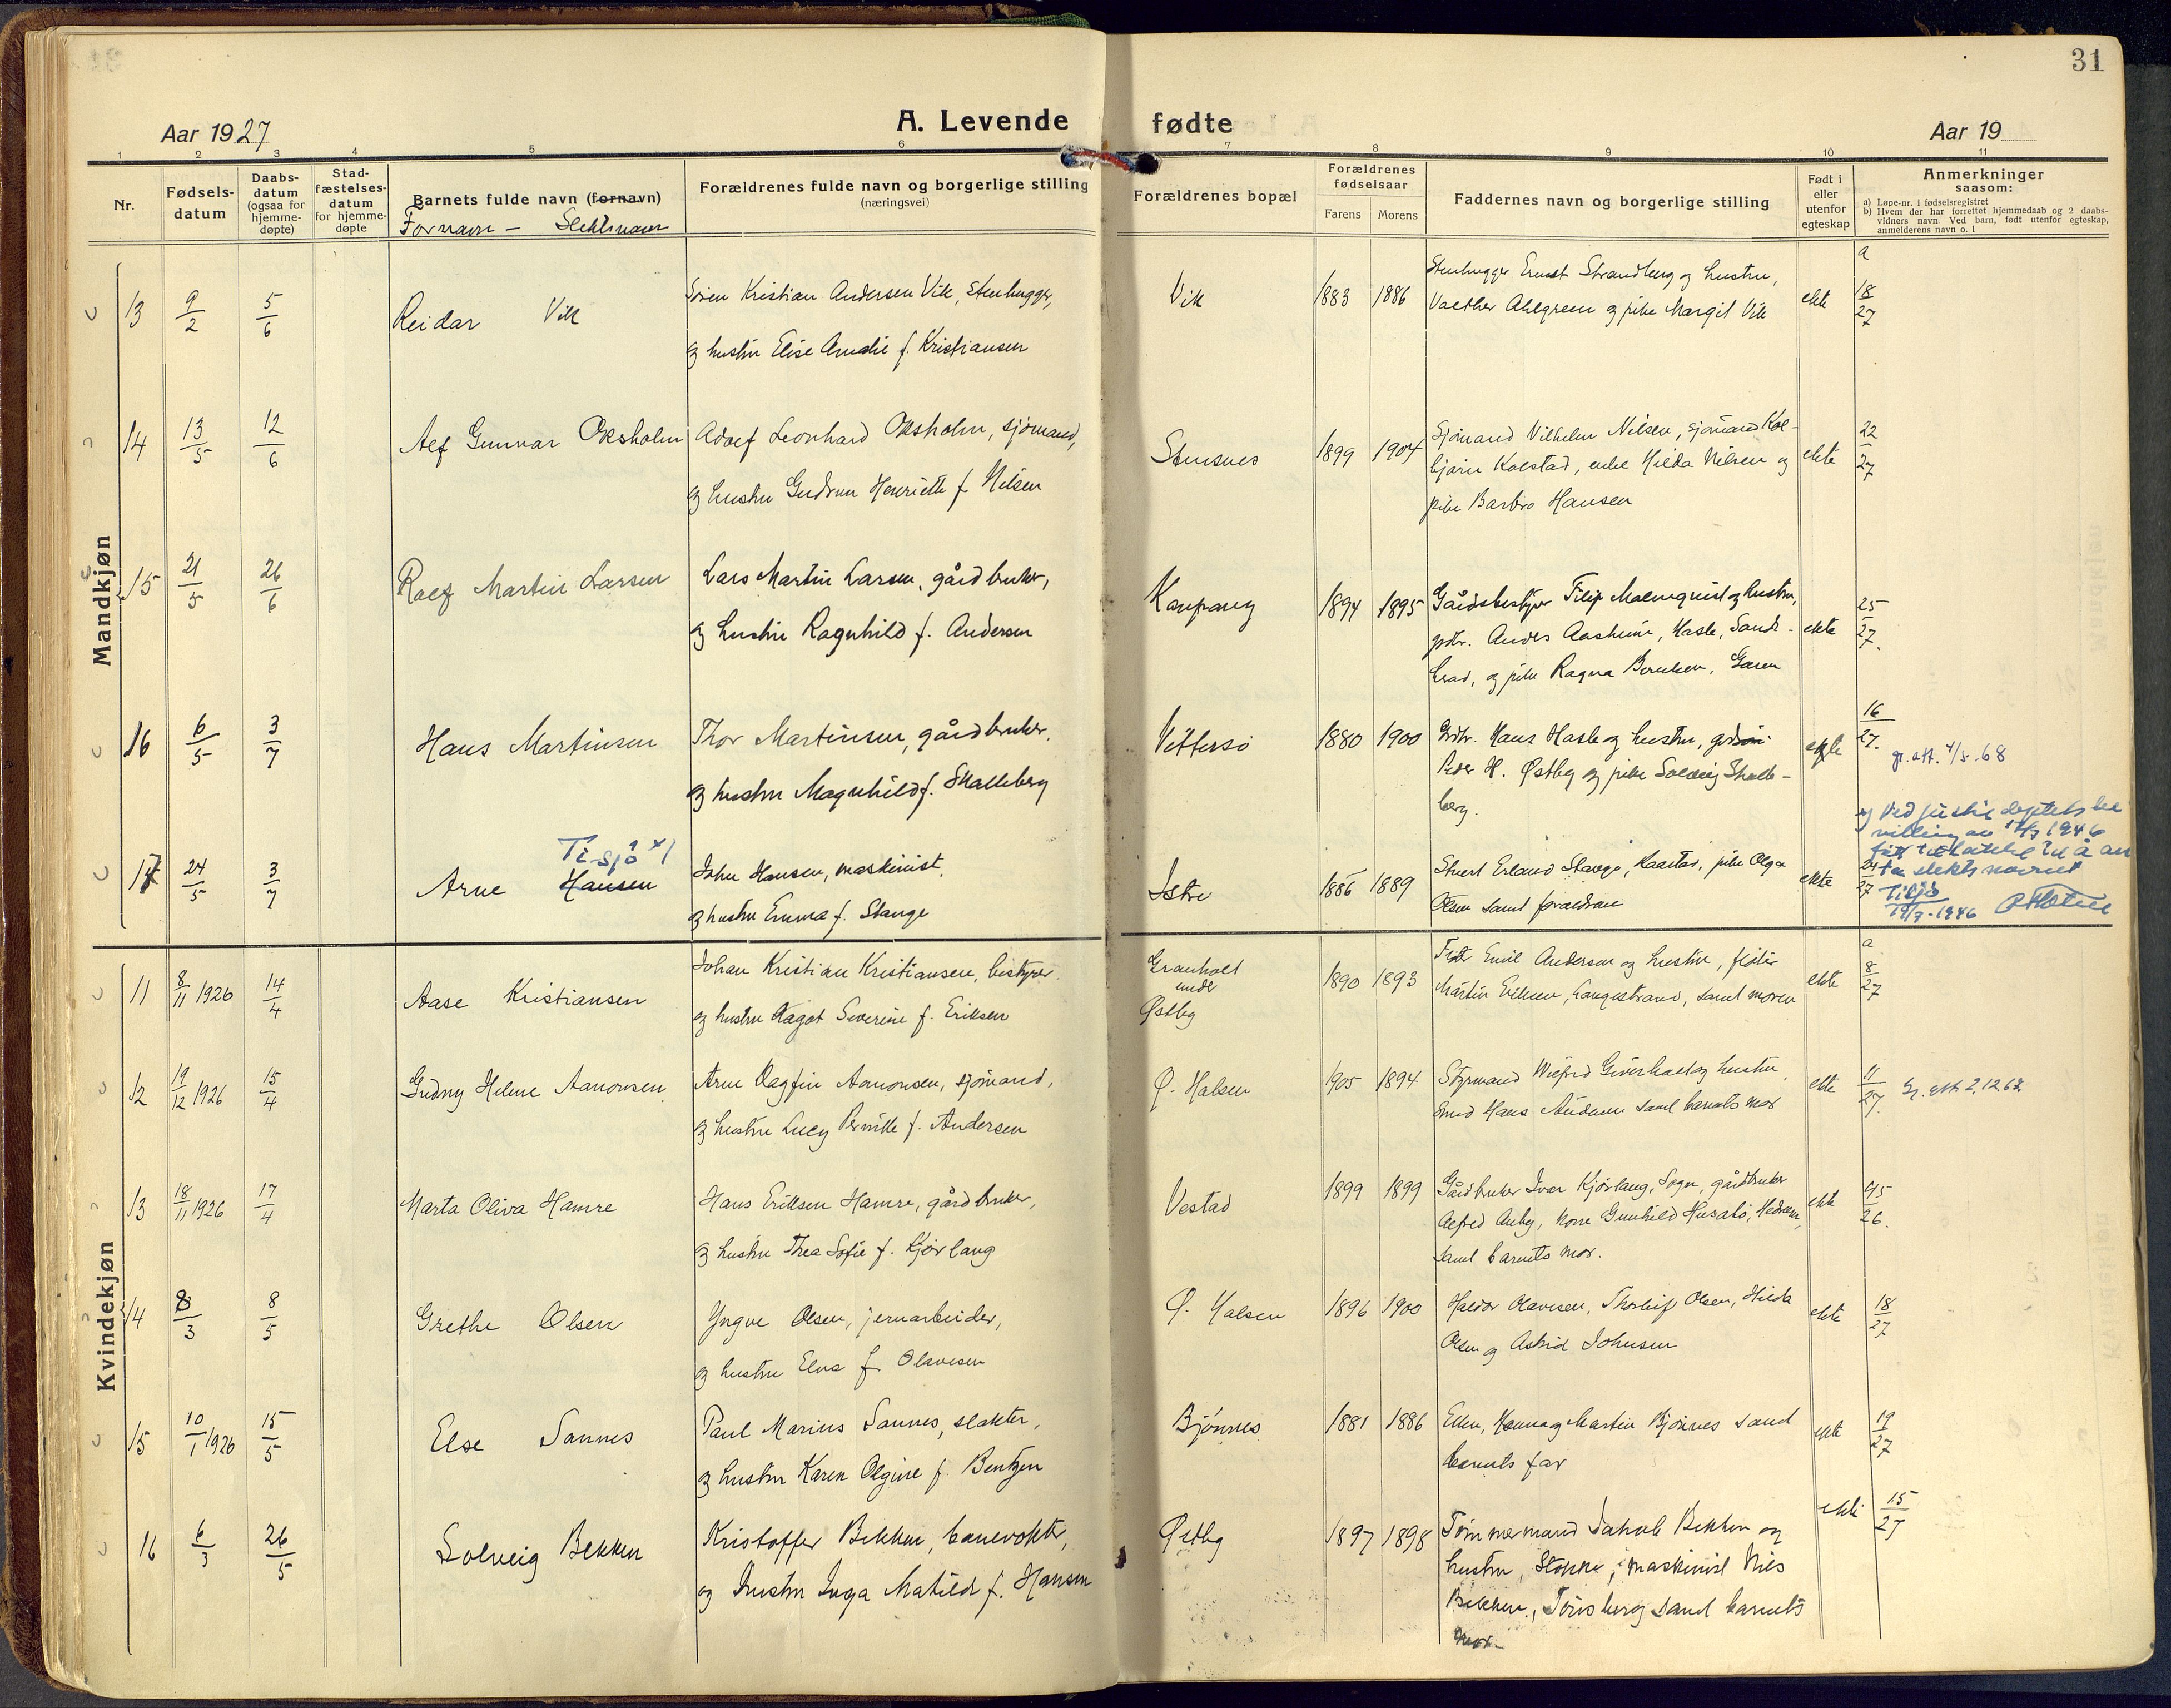 31
Aar 1927
A. Levende fødte
Aar 19
1 2 3 4 5 6 7 8 9 10 11
Nr.
Fødsels-
datum
Daabs-
datum
(ogsaa for
hjemme-
døpte)
Stad-
fæstelses-
datum
for hjemme-
døpte
Barnets fulde navn (fornavn)
Fornavn –
Forældrenes fulde navn og borgerlige stilling
(næringsvei)
Forældrenes bopæl
Forældrenes
fødselsaar
Farens Morens
Faddernes navn og borgerlige stilling
Født i
eller
utenfor
egteskap
Anmerkninger
saasom:
a) Løpe-nr. i fødselsregistret
b) Hvem der har forrettet hjemmedaab og 2 daabs-
vidners navn. Ved barn, født utenfor egteskap,
anmelderens navn o. l
Mandkjøn
13 9/2 5/6 Reidar Vik
Søren Kristian Andersen Vik, Stenhugger,
og hustru Elise Amalie f. Kristiansen
Vik 1883 1886
Stenhugger Ernst Strandberg og hustru,
Valther Ahlgreen og pike Margit Vik
ekte
a
18/27
14 13/5 12/6 Alf Gunnar Oksholm
Adolf Leonhard Oksholm, sjömand,
og hustru Gudrun Henriette f. Nilsen
Stensnes 1899 1904
Sjömand Vilhelm Nilsen, sjömand Kol-
björn Kolstad, enke Hilda Nilsen og
pike Barbro Hansen
ekte 22/27
15 21/5 26/6 Rolf Martin Larsen
Lars Martin Larsen, gårdbruker,
og hustru Ragnhild f. Andersen
Kaupang 1894 1895
Gårdsbestyrer Filip Malmquist og hustru,
gdbr. Anders Aasheim, Hasle, Sande-
herad, og pike Ragna Berntsen,
ekte 25/27.
16 6/5 3/7 Hans Martinsen
Thor Martinsen, gårdbruker,
og hustru Magnhild f. Skalleberg
Vittersö 1880 1900
Grdbr. Hans Hasle og hustru,
Peder H. Østby og pike Solveig Skalle-
berg.
ekte 16/27.
gr. att. 4/5.68
17 24/5 3/7 Arne Hansen
Tisjö x)
John Hansen, maskinist,
og hustru Emma f. Stange
Istre 1886 1889
Stuert Erland Stange, Kaastad, pike Olga
Olsen samt forældrene
ekte 24/27
x) Ved justisdeptets be
villing av 17/7 1946
fått tillatelse til å an
ta slektsnavnet
Tisjö
19/7-1946
Kvindekjøn
11 8/11 1926 14/4 Aase Kristiansen
Johan Kristian Kristiansen, bestyrer
og hustru Dagot Severine f. Eriksen
Granholt
under
Østby
1890 1893
Emil Andersen og hustru,
Martin Eriksen, Langestrand, samt moren
ekte
a
8/27
12 19/12 1926 15/4 Gudny Helene Aanonsen
Arne Dagfin Aanonsen, sjömand,
og hustru Lucy Pernille f. Andersen
Ø. Halsen 1905 1894
Styrmand Wilfred Giverholt og hustru,
Smed Hans Andersen samt barnets mor
ekte 11/27.
gr. att. 2.12 68.
13 18/11 1926 17/4 Marta Oliva Hamre
Hans Eriksen Hamre, gårdbruker,
og hustru Thea Sofie f. Kjörlaug
Vestad 1899 1899
Gårdbruker Ivar Kjörlaug, Sogn, gårdbruker
Alfred Auby, kone Gunhild Husabö, Hedrum,
samt barnets mor.
ekte 45/26.
14 8/3 8/5 Grethe Olsen
Yngve Olsen, jernarbeider,
og hustru Elna f. Olavesen
Ø. Halsen 1896 1900
Haldor Olavesen, Thorleif Olsen, Hilda
Olsen og Astrid Johnsen
ekte 18/27
15 10/1 1926 15/5 Else Sannes
Paul Marius Sannes, slakter,
og hustru Karen Olgine f. Bentzen
Bjönnes 1881 1886
Ellen, Hanna og Martin Bjönnes samt
barnets far
ekte 19/27
16 6/3 26/5 Solveig Bekken
Kristoffer Bekken, banevokter,
og hustru Inga Matilde f. Hansen
Østby 1897 1898
Tømmermand Jakob Bekken og
hustru, Stokke, maskinist Nils
Bekken, Tönsberg samt barnets
mor
ekte 15/27